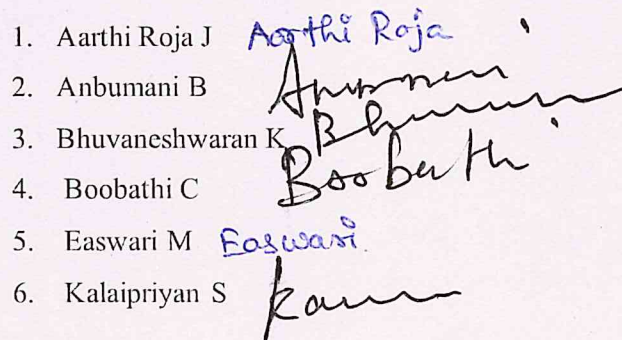 1. Aarthi Roja J Aarthi Roja
2. Anbumani B
3. Bhuvaneshwaran K
4. Boobathi C Boobathi
5. Easwari M Easwari
6. Kalaipriyan S